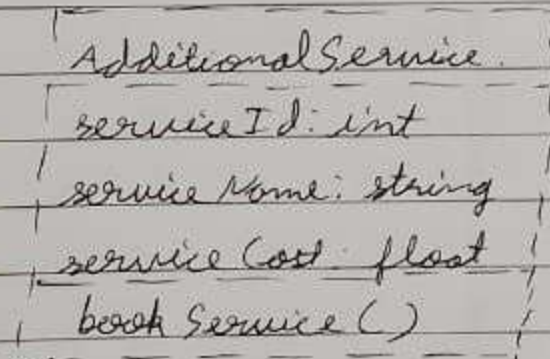 AdditionalService
serviceId: int
serviceName: string
serviceCost: float
bookService()